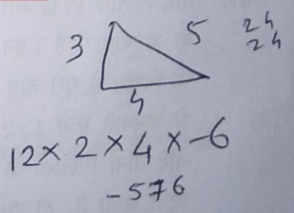 3 5 24
24
4
12 × 2 × 4 × -6
-576